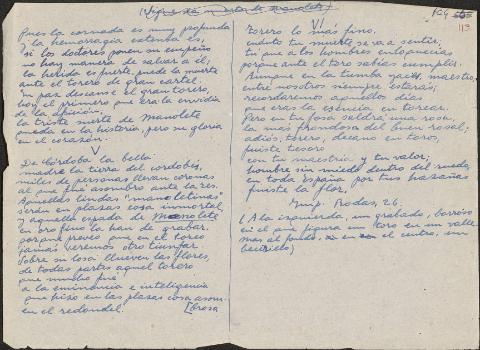 (Sigue la muerte de Manolete)
Pues la cornada es muy profunda
y la hemorragia estaba es,
si los doctores ponen su empeño
no hay manera de salvar a él;
la herida es fuerte, puede la muerte
ante el torero de gran cartel.
En paz descanse el gran torero,
hoy el primero que era la envidia
de la afición,
la triste suerte de Manolete
queda en la historia, pero su gloria
en el corazón.
V
De Córdoba la bella
madre la tierra del cordobés,
miles de personas lloran coronas
al que fue asombro ante la res.
Aquellas tandas "manoletinas"
serán en plazas cosa inmortal,
y aquella espada de Manolete
en oro fino la han de grabar,
porque preveo que en el toreo
jamás veremos otro triunfar.
Sobre su losa llueven las flores,
de todas partes aquel torero
que mucho fue
a la eminencia e inteligencia
que hizo en las plazas cosa
en el redondel.
VI
Torero lo más fino,
cuánto tu muerte se va a sentir;
tú que a los hombres enloquecías
porque ante el toro sabías cumplir.
Aunque en la tumba yaces, maestro,
entre nosotros siempre estarás;
recordaremos aquellos días
que eras la esencia en torear.
Pero en tu fosa saldrá una rosa,
la más frondosa del buen rosal;
adiós, torero, decano en toros,
fuiste tesoro
con tu maestría y tu valor;
hombre sin miedo dentro del ruedo,
en toda España por tus hazañas
fuiste la flor.
Imp. Rodas, 26.
(A la izquierda, un grabado, borroso
en el que figura un toro en un valle
mas al fondo, en el centro, un
becerillo)
113